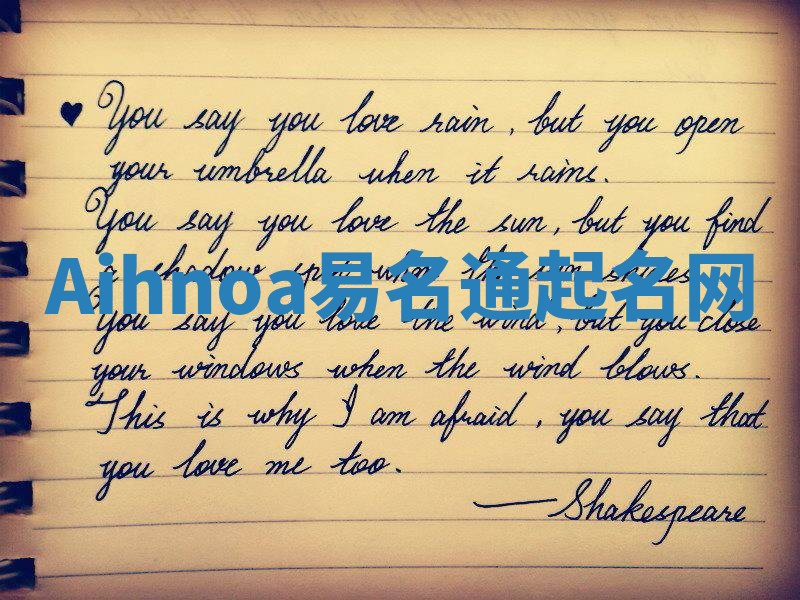 You say you love rain, but you open
your umbrella when it rains.
You say you love the sun, but you find
a shadow spot when the sun shines.
Aihnoa易名通起名网
You say you love the wind, but you close
your windows when the wind blows.
This is why I am afraid, you say that
you love me too.
—Shakespeare